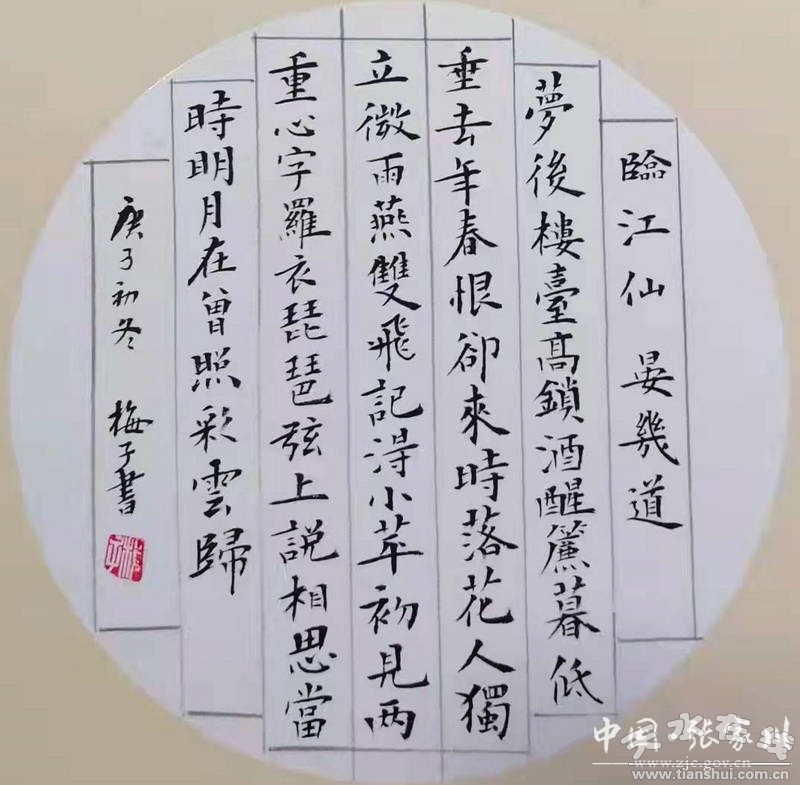 臨江仙 晏幾道
夢後樓臺高鎖酒醒簾暮低
垂去年春恨卻來時落花人獨
立微雨燕雙飛記得小苹初見两
重心字羅衣琵琶弦上説相思當
時明月在曾照彩雲歸
庚子初冬 梅子書
中国 张家川
www.zjc.gov.cn
www.tianshui.com.cn